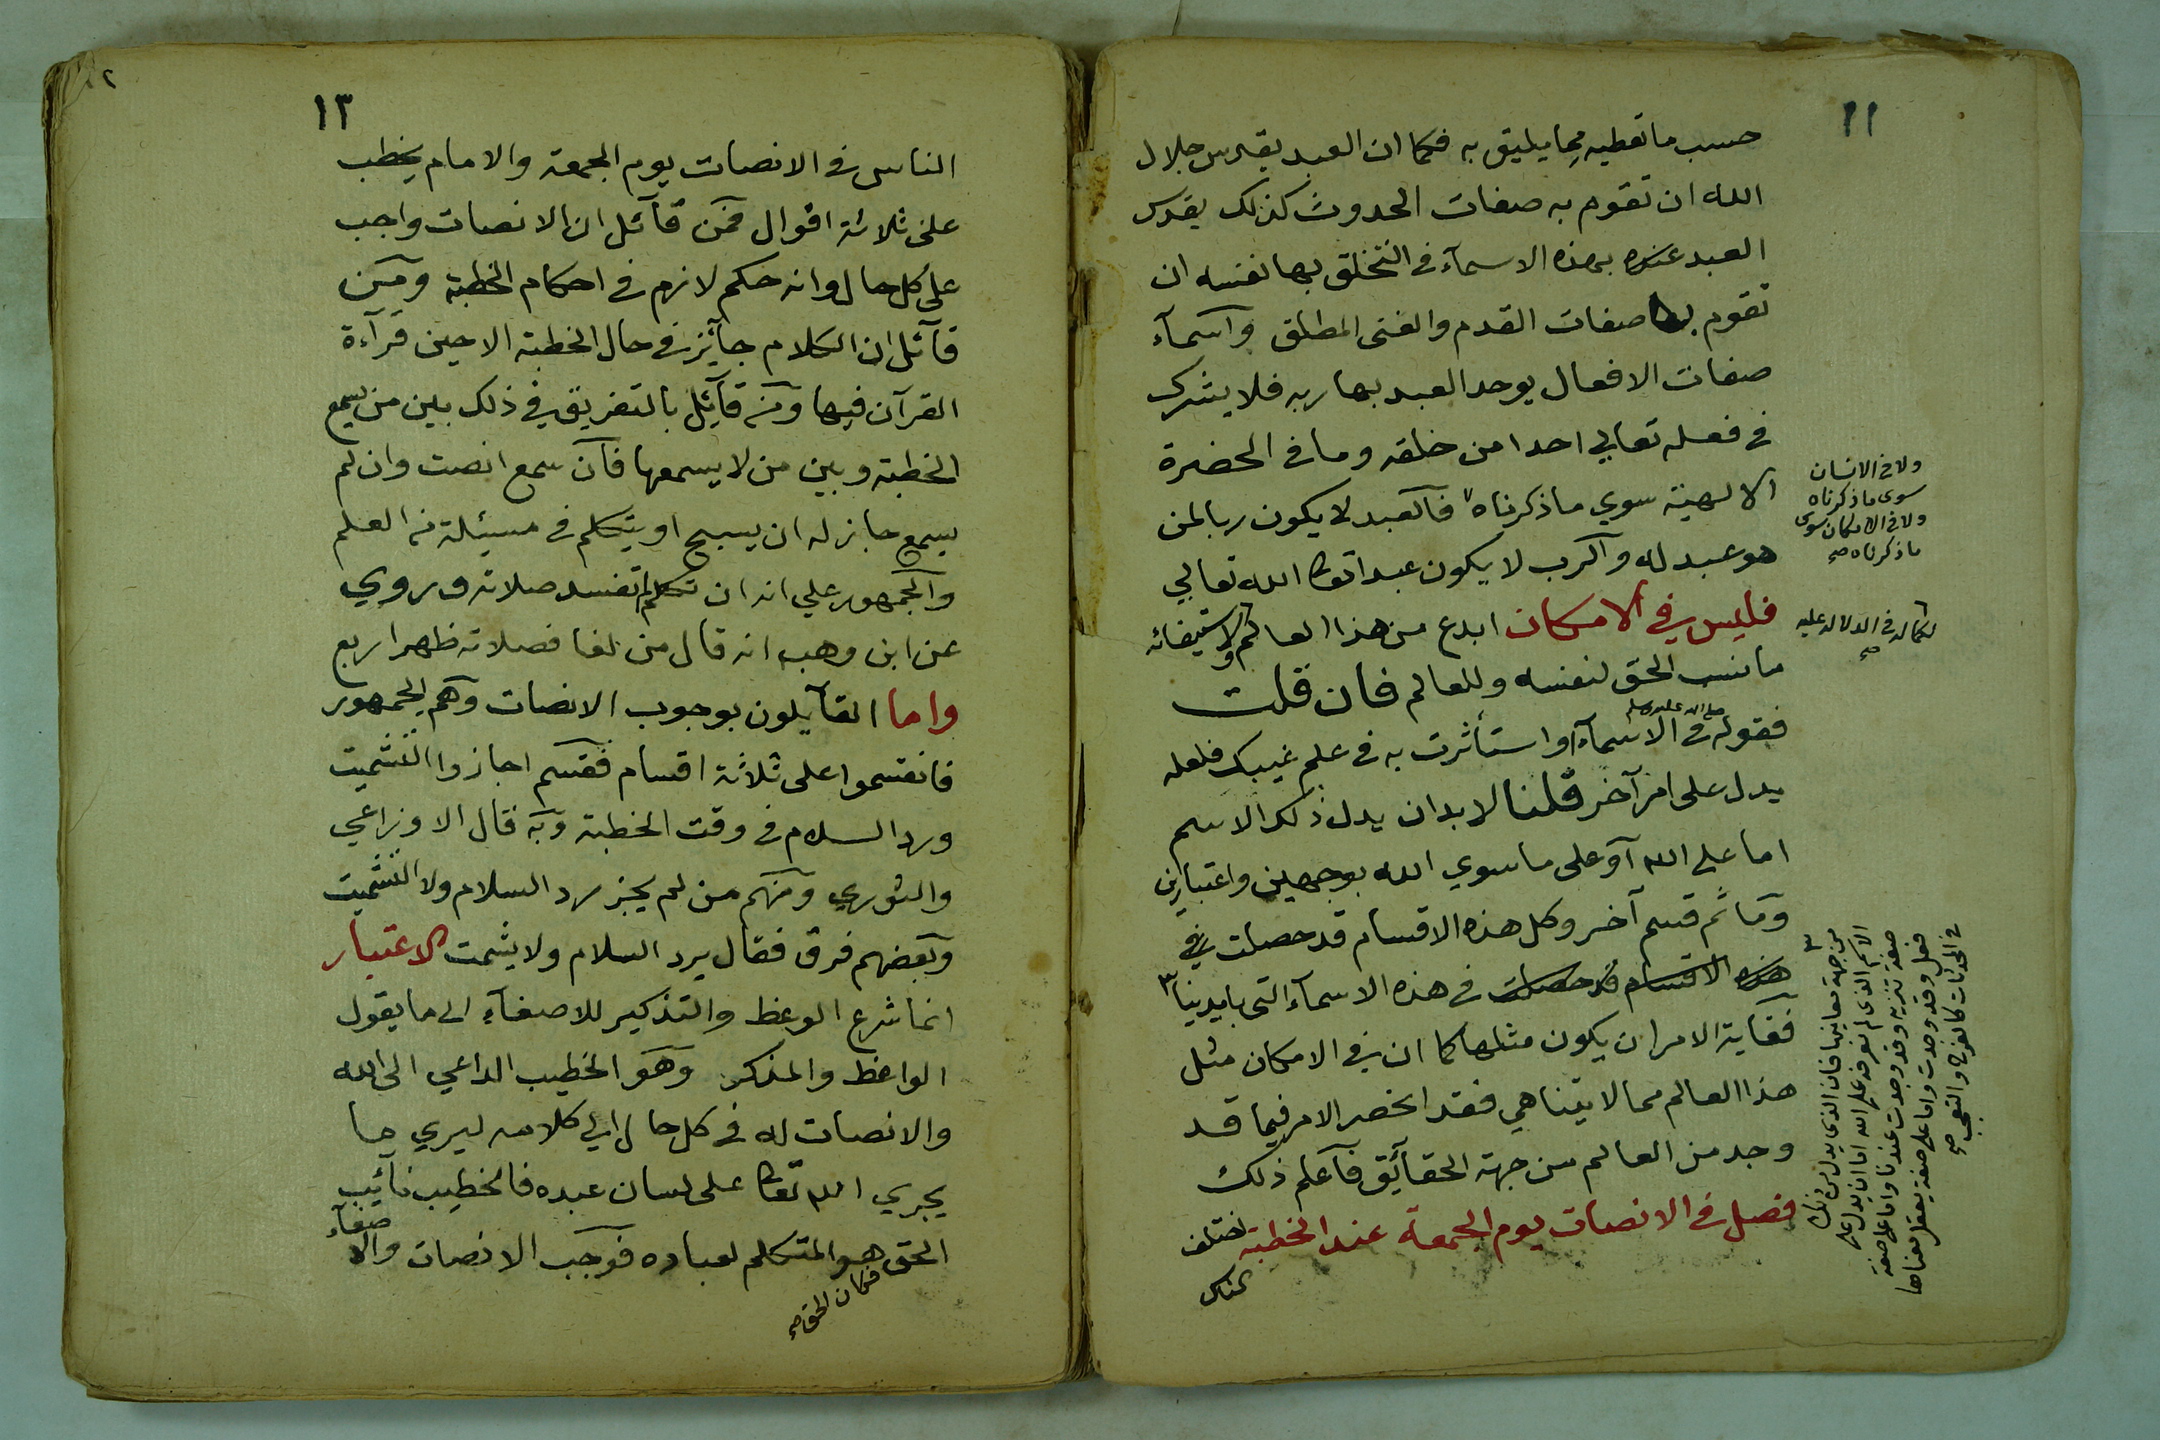 ١١
حسب ما تعطيه مما يليق به فكما ان العبد يقدس جلال
الله ان تقوم به صفات الحدوث كذلك يقدس
العبد عنده بهذه الاسمآء في التخلق بها نفسه ان
تقوم بها صفات القدم والغنى المطلق واسمآء
صفات الافعال يوحد العبد بها ربه فلا يشرك
في فعله تعالي احدا من خلقه وما في الحضرة
الالهية سوي ما ذكرناه فالعبد لا يكون ربا لمن
هو عبد له والرب لا يكون عبدا تعا الله تعالي
فليس في الامكان ابدع من هذا العالم ولاستيفائه
ما نسب الحق لنفسه وللعالم فان قلت
فقوله صلى الله عليه وسلم في الاسمآء او استأثرت به في علم غيبك فلعله
يدل على امر آخر قلنا لابد ان يدل ذلك الاسم
اما علي الله او على ما سوي الله بوجهين واعتبارين
وما ثم قسم آخر وكل هذه الاقسام قد حصلت في
هذه الاقسام قد حصلت في هذه الاسمآء التي بايدينا ٣
فغاية الامر ان يكون مثلها كما ان في الامكان مثل
هذا العالم مما لا يتناهي فقد انحصر الامر فيما قد
وجد من العالم من جهة الحقآئق فاعلم ذلك
فصل في الانصات يوم الجمعة عند الخطبة اختلف
الناس
ولا في الانسان
سوى ما ذكرناه
ولا في الامكان سوى
ما ذكرناه صح
لكماله في الدلالة عليه
صح
٣
من جهة معانيها فان الذى يدل من ذلك
الاسم الذى لم نعرفه على الله اما ان يدل على
صفة تنزيه وقد وجدت عندنا واما على صفة
فعل وقد وجدت واما على صفة يعقل معناها
في المحدثات كالفرح والتعجب صح
١٣
الناس في الانصات يوم الجمعة والامام يخطب
على ثلاثة اقوال فمن قآئل ان الانصات واجب
على كل حال وانه حكم لازم في احكام الخطبة ومن
قآئل ان الكلام جآئز في حال الخطبة الا حين قرآءة
القرآن فيها ومن قآئل بالتفريق في ذلك بين من يسمع
الخطبة وبين من لا يسمعها فان سمع انصت وان لم
يسمع جاز له ان يسبح او يتكلم في مسيئلة من العلم
والجمهور علي انه ان تكلم لم تفسد صلاته وروي
عن ابن وهب انه قال من لغا فصلاته ظهرا ربع
واما القآيلون بوجوب الانصات وهم الجمهور
فانقسموا على ثلاثة اقسام فقسم اجازوا التشميت
ورد السلام في وقت الخطبة وبه قال الاوزاعي
والثوري ومنهم من لم يجز رد السلام ولا التشميت
وبعضهم فرق فقال يرد السلام ولا يشمت الاعتبار
انما شرع الوعظ والتذكير للاصغآء الى ما يقول
الواعظ والمذكر وهو الخطيب الداعي الى الله
والانصات له في كل حال الي كلامه ليري ما
يجري الله تعا على لسان عبده فالخطيب نآئيب
الحق هو المتكلم لعباده فوجب الانصات والاصغآء
فكان الحق صح